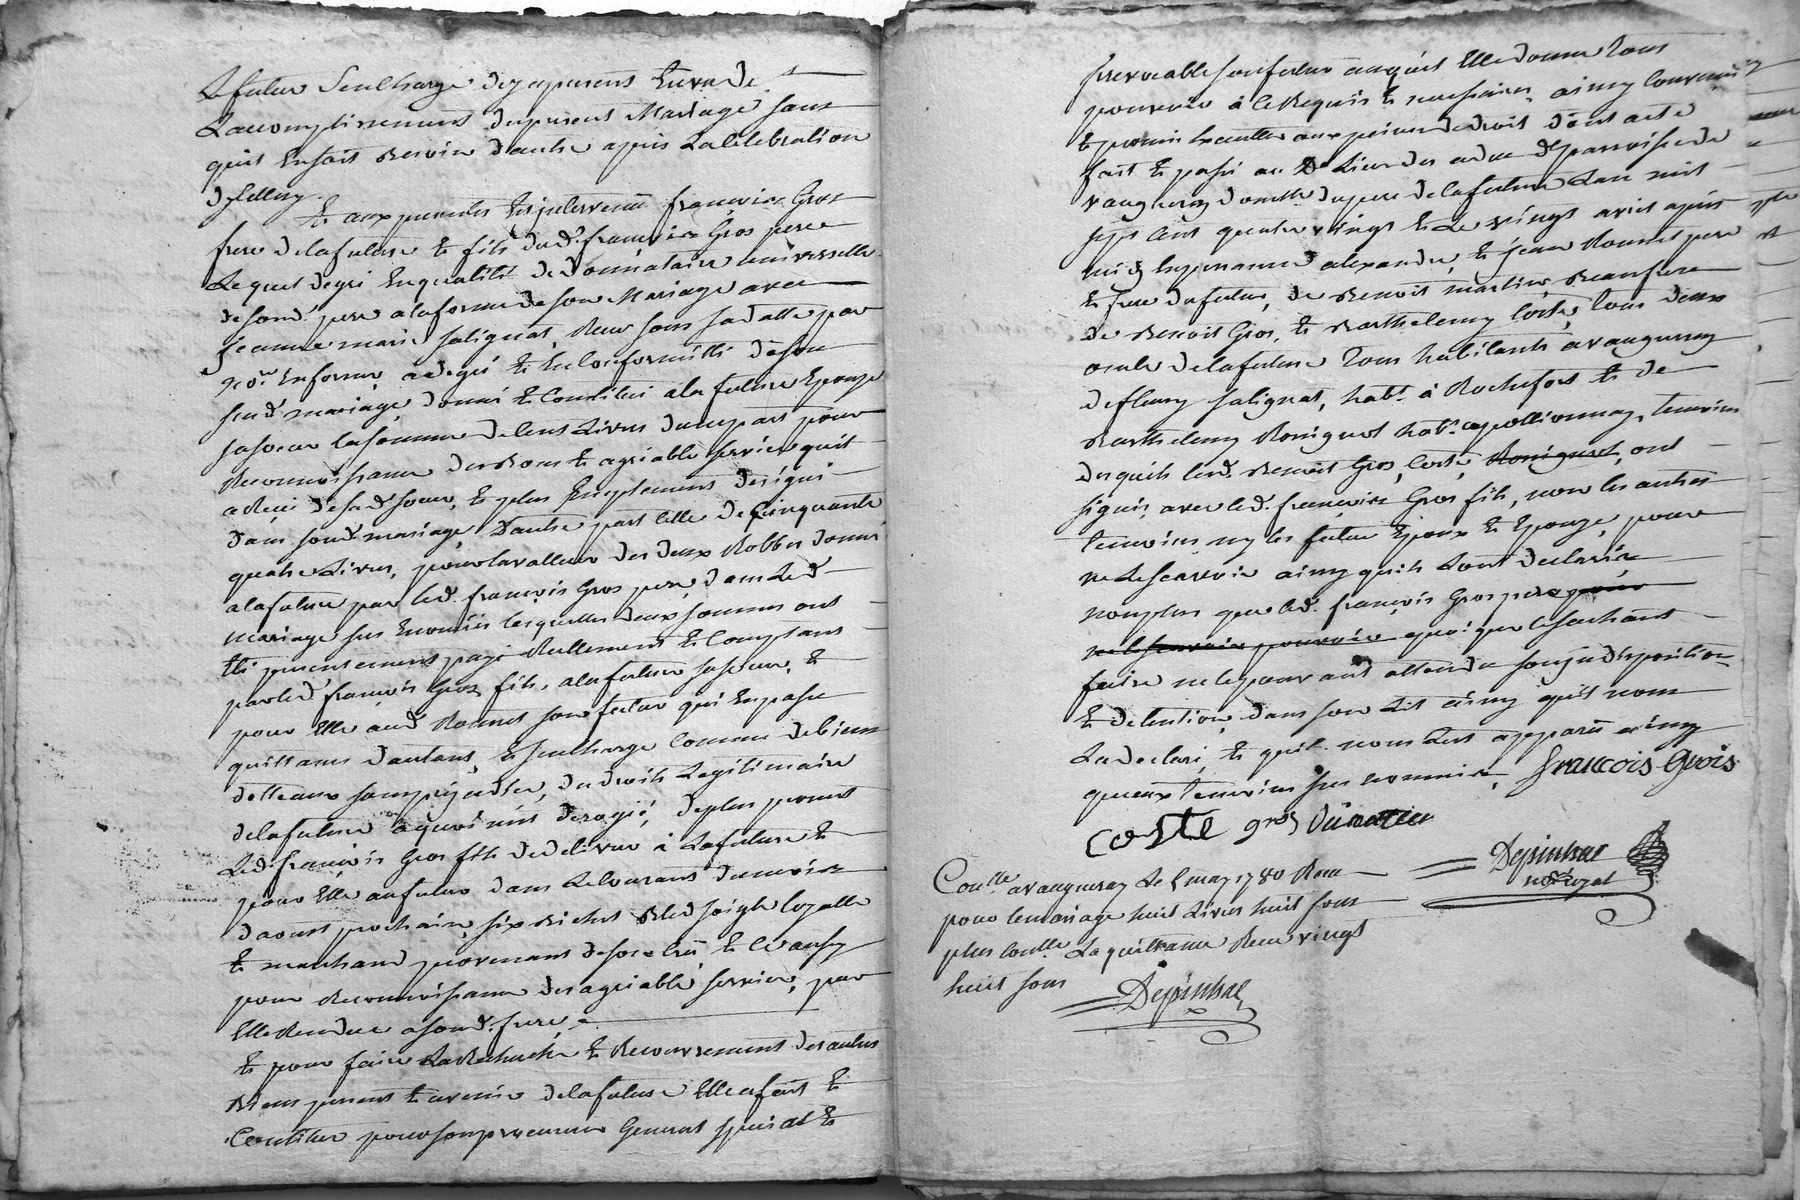 Le futur Sencharge dezapresent En vu de
Laccomplissement dupresent Mariage sans
quil Ensoit Besoin dautre apres La Celebration
dyselluy.
Et aux presentes Est intervenu françois Gros
frere delafuture et fils dud. françois Gros pere
Lequel degré Enqualité de donnataire universelle
desond. pere alaforme deson Mariage avec
jeanne marie salignat, Reçu sous sadatte par
Enforme, adegré et En Conformitté deson
sud. mariage, donné et Constitué alafuture Epouze
sasoeur lasomme deCent Livres dunepart pour
Reconnoissance des Bons et agreable service quil
aReçu desad. soeur, et plus Emplement designé
dans sond. mariage, Dautre part Celle de Cinquante
quatre Livres, pour lavalleur des deux Robbes donné
alafuture par led. françois Gros pere, dans Led.
mariage sus Enoncés lesquelles deux sommes ont
Eté presentement payé Reellement et Comptant
parled. françois Gros fils, alafuture sasoeur, et
pour Elle aud. Rounet son futur qui En passe
quittance dautant, et sencharge Comme de biens
dotteaux sans prejudice, du droit Legitimaire
delafuture aquoi nest derogé, deplus promet
Led. françois Gros fils de delivrer à Lafuture et
pour Elle aufutur dans Lecourant dumois
daoust prochain, six Bichet Bled seigle loyalle
et marchand provenant deson Cru et Ce aussy
pour Reconnoissance des agreable service, par
Elle Rendue asond. frere,
Et pour faire La Recherche et Recouvrement des autres
Biens present et avenir delafuture Elle a fait et
Constitué pour son procureur General special et
jrrevocable son futur auquel Elle donne tous
pouvoir à Ce Requis et necessaires, ainsy Convenu
et promis Executter aux peines de droit Dont acte
fait et passé au Lieu des adue dparroisse de
vaugneray domicille dupere delafuture Lan mil
sept Cent quatre vingt et Le vingt avril apres
midy Enpresance alexandre, et jean Rounet pere
et frere dufutur, de Benoit martin, Beaufrere
de Benoit Gros, et Barthelemy Coste, tous deux
oncle delafuture tous habitants avaugneray
defleury salignat, habt. à Rochefort et de
Barthelemy Ronignet habt. apollionnay, temoins
desquels lesd. Benoit Gros, Coste, Ronignet, ont
signés avec led. françois Gros fils, non les autres
temoins ny les futur Epoux et Epouze, pour
ne Lesçavoir ainsy quils Lont declarés
nonplus queled. françois Gros pere pour
ne le sçavoir pouvoir quoique le sachant
faire ne lepouvant attendu son jndisposition
et detention dans son Lit ainsy quil nous
La declaré, et quil nous Est apparu ainsy
quaux temoins sus nommés, françois Grois
coste gros
Depinhac
nore. royal
Conlle. avaugneray Le 5 may 1780 Reçu
pour lemariage huit Livres huit sous
plus Conlle. La quittance Reçu vingt
huit sous
Depinhac